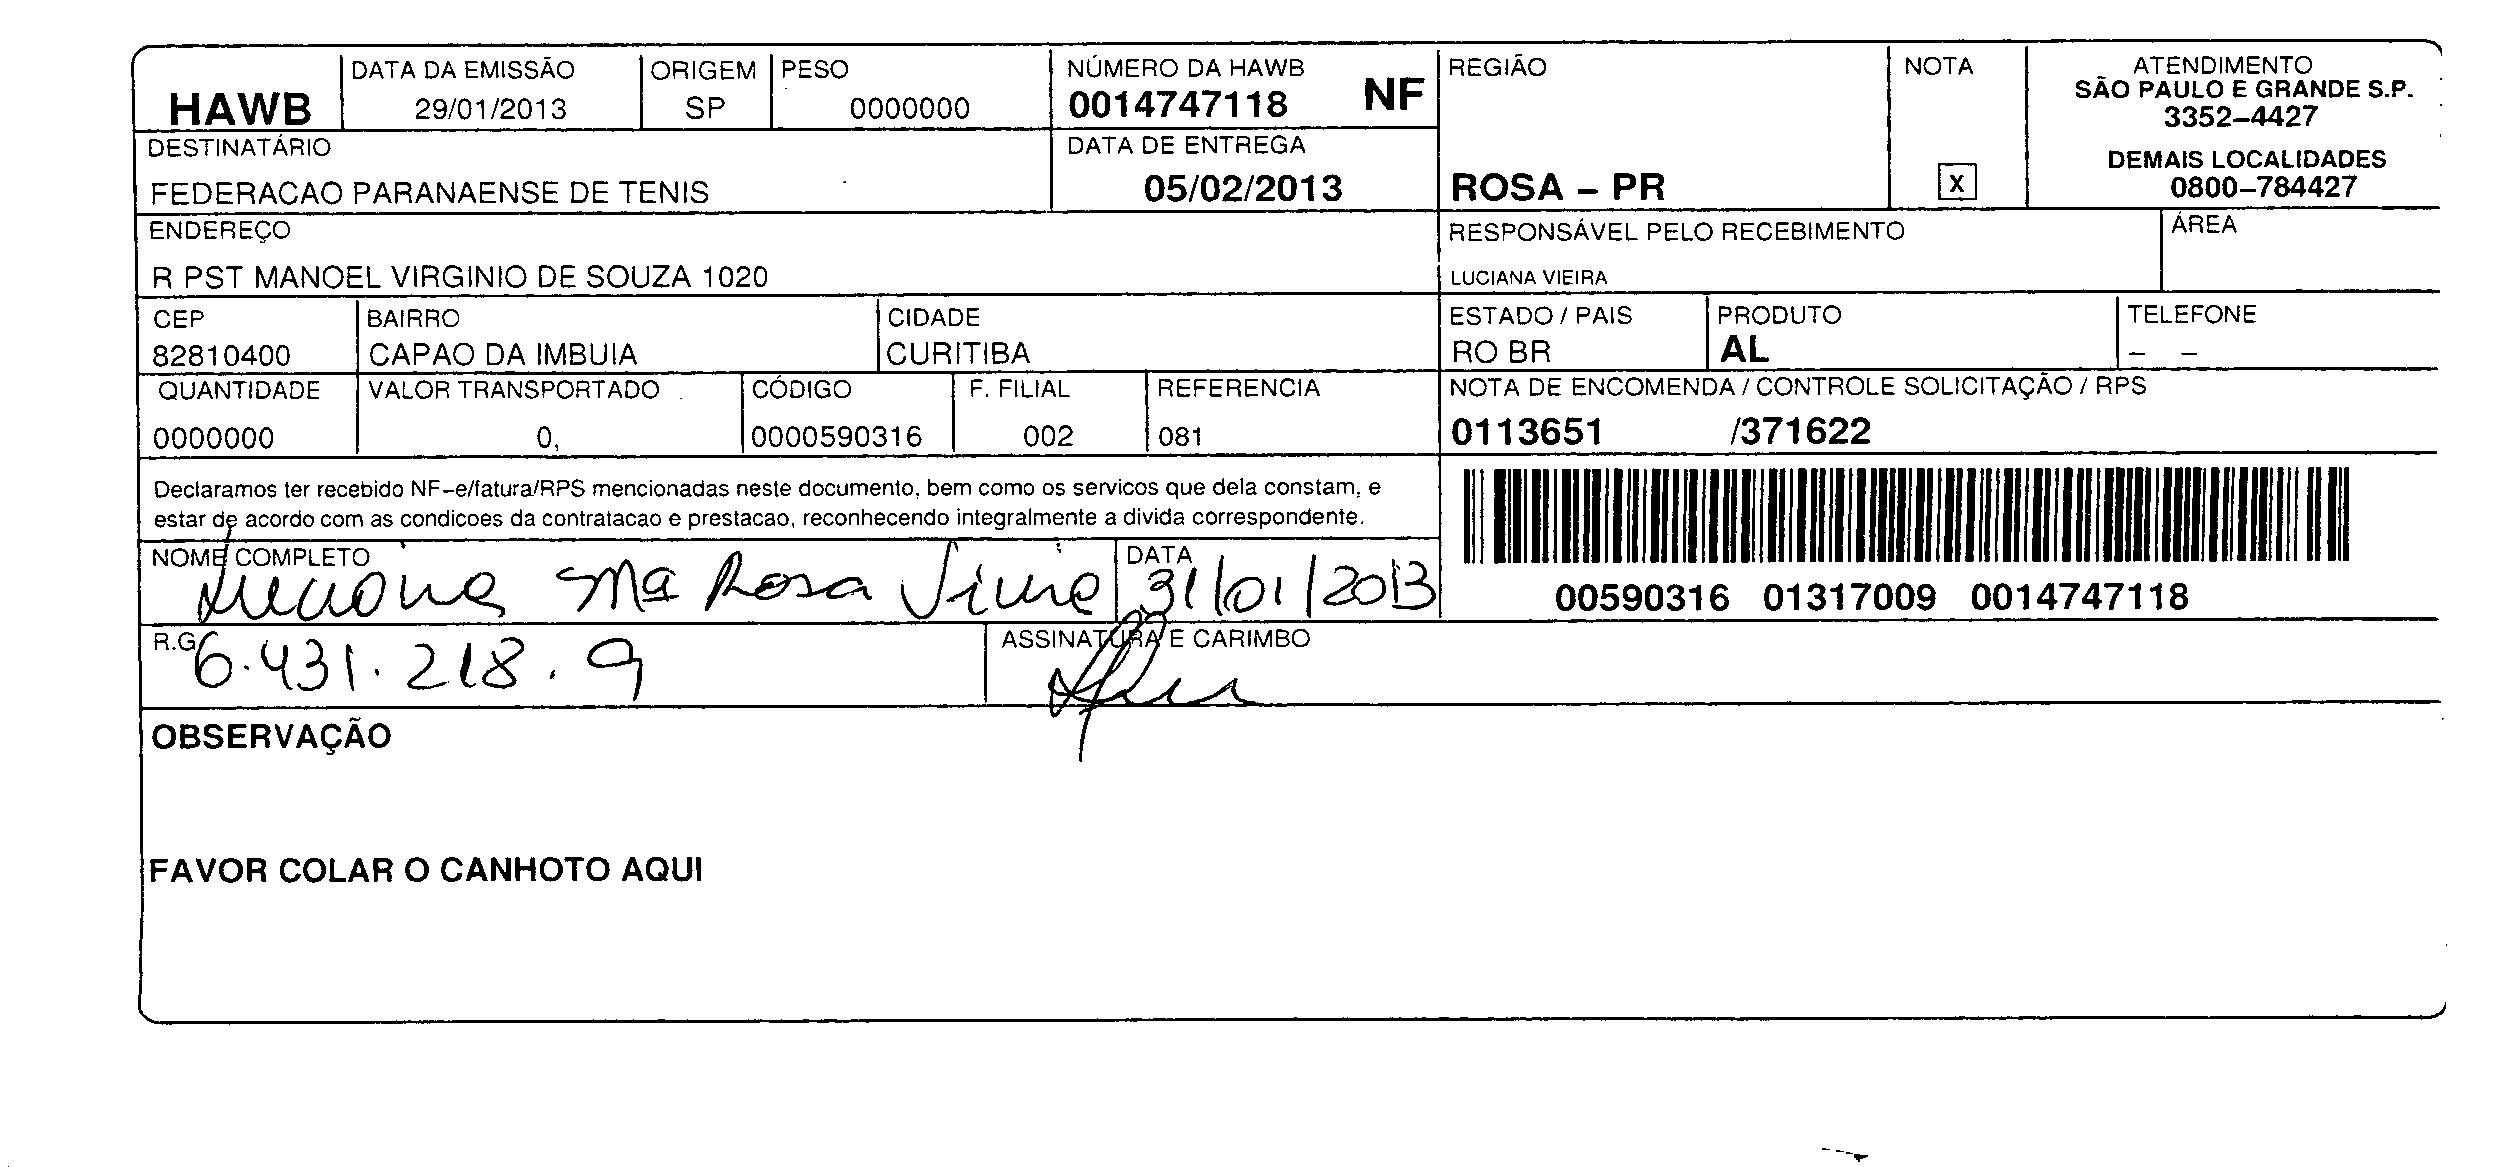 HAWB
DATA DA EMISSÃO
29/01/2013
ORIGEM
SP
PESO
0000000
NÚMERO DA HAWB
0014747118 NF
REGIÃO
ROSA – PR
NOTA
X
ATENDIMENTO
SÃO PAULO E GRANDE S.P.
3352–4427
DEMAIS LOCALIDADES
0800–784427
DESTINATÁRIO
FEDERACAO PARANAENSE DE TENIS
DATA DE ENTREGA
05/02/2013
ENDEREÇO
R PST MANOEL VIRGINIO DE SOUZA 1020
RESPONSÁVEL PELO RECEBIMENTO
LUCIANA VIEIRA
ÁREA
CEP
82810400
BAIRRO
CAPAO DA IMBUIA
CIDADE
CURITIBA
ESTADO / PAIS
RO BR
PRODUTO
AL
TELEFONE
– –
QUANTIDADE
0000000
VALOR TRANSPORTADO
0,
CÓDIGO
0000590316
F. FILIAL
002
REFERENCIA
081
NOTA DE ENCOMENDA / CONTROLE SOLICITAÇÃO / RPS
0113651 /371622
Declaramos ter recebido NF–e/fatura/RPS mencionadas neste documento, bem como os servicos que dela constam, e
estar de acordo com as condicoes da contratacao e prestacao, reconhecendo integralmente a divida correspondente.
NOME COMPLETO
Luciana Mª Rosa Vieira
DATA
31/01/2013
00590316 01317009 0014747118
R.G
6.431.218.9
ASSINATURA E CARIMBO
OBSERVAÇÃO
FAVOR COLAR O CANHOTO AQUI